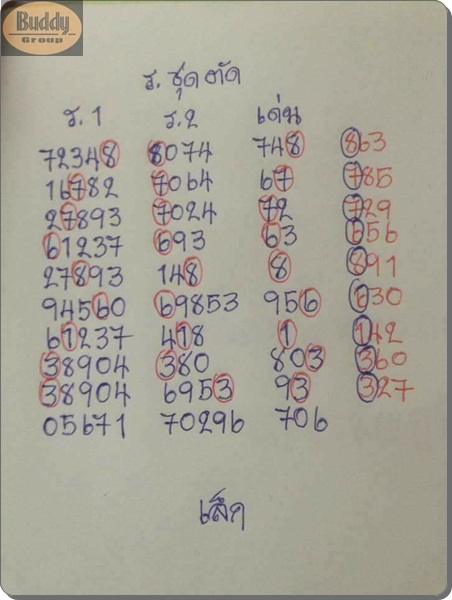 Buddy
Group
ร. ชุด ตัด
ร.1 ร.2 เด่น
72348 8074 748 863
16782 7064 67 785
27893 7024 72 729
61237 693 63 656
27893 148 8 891
94560 69853 956 630
61237 418 1 142
38904 380 803 360
38904 6953 93 327
05671 70296 706